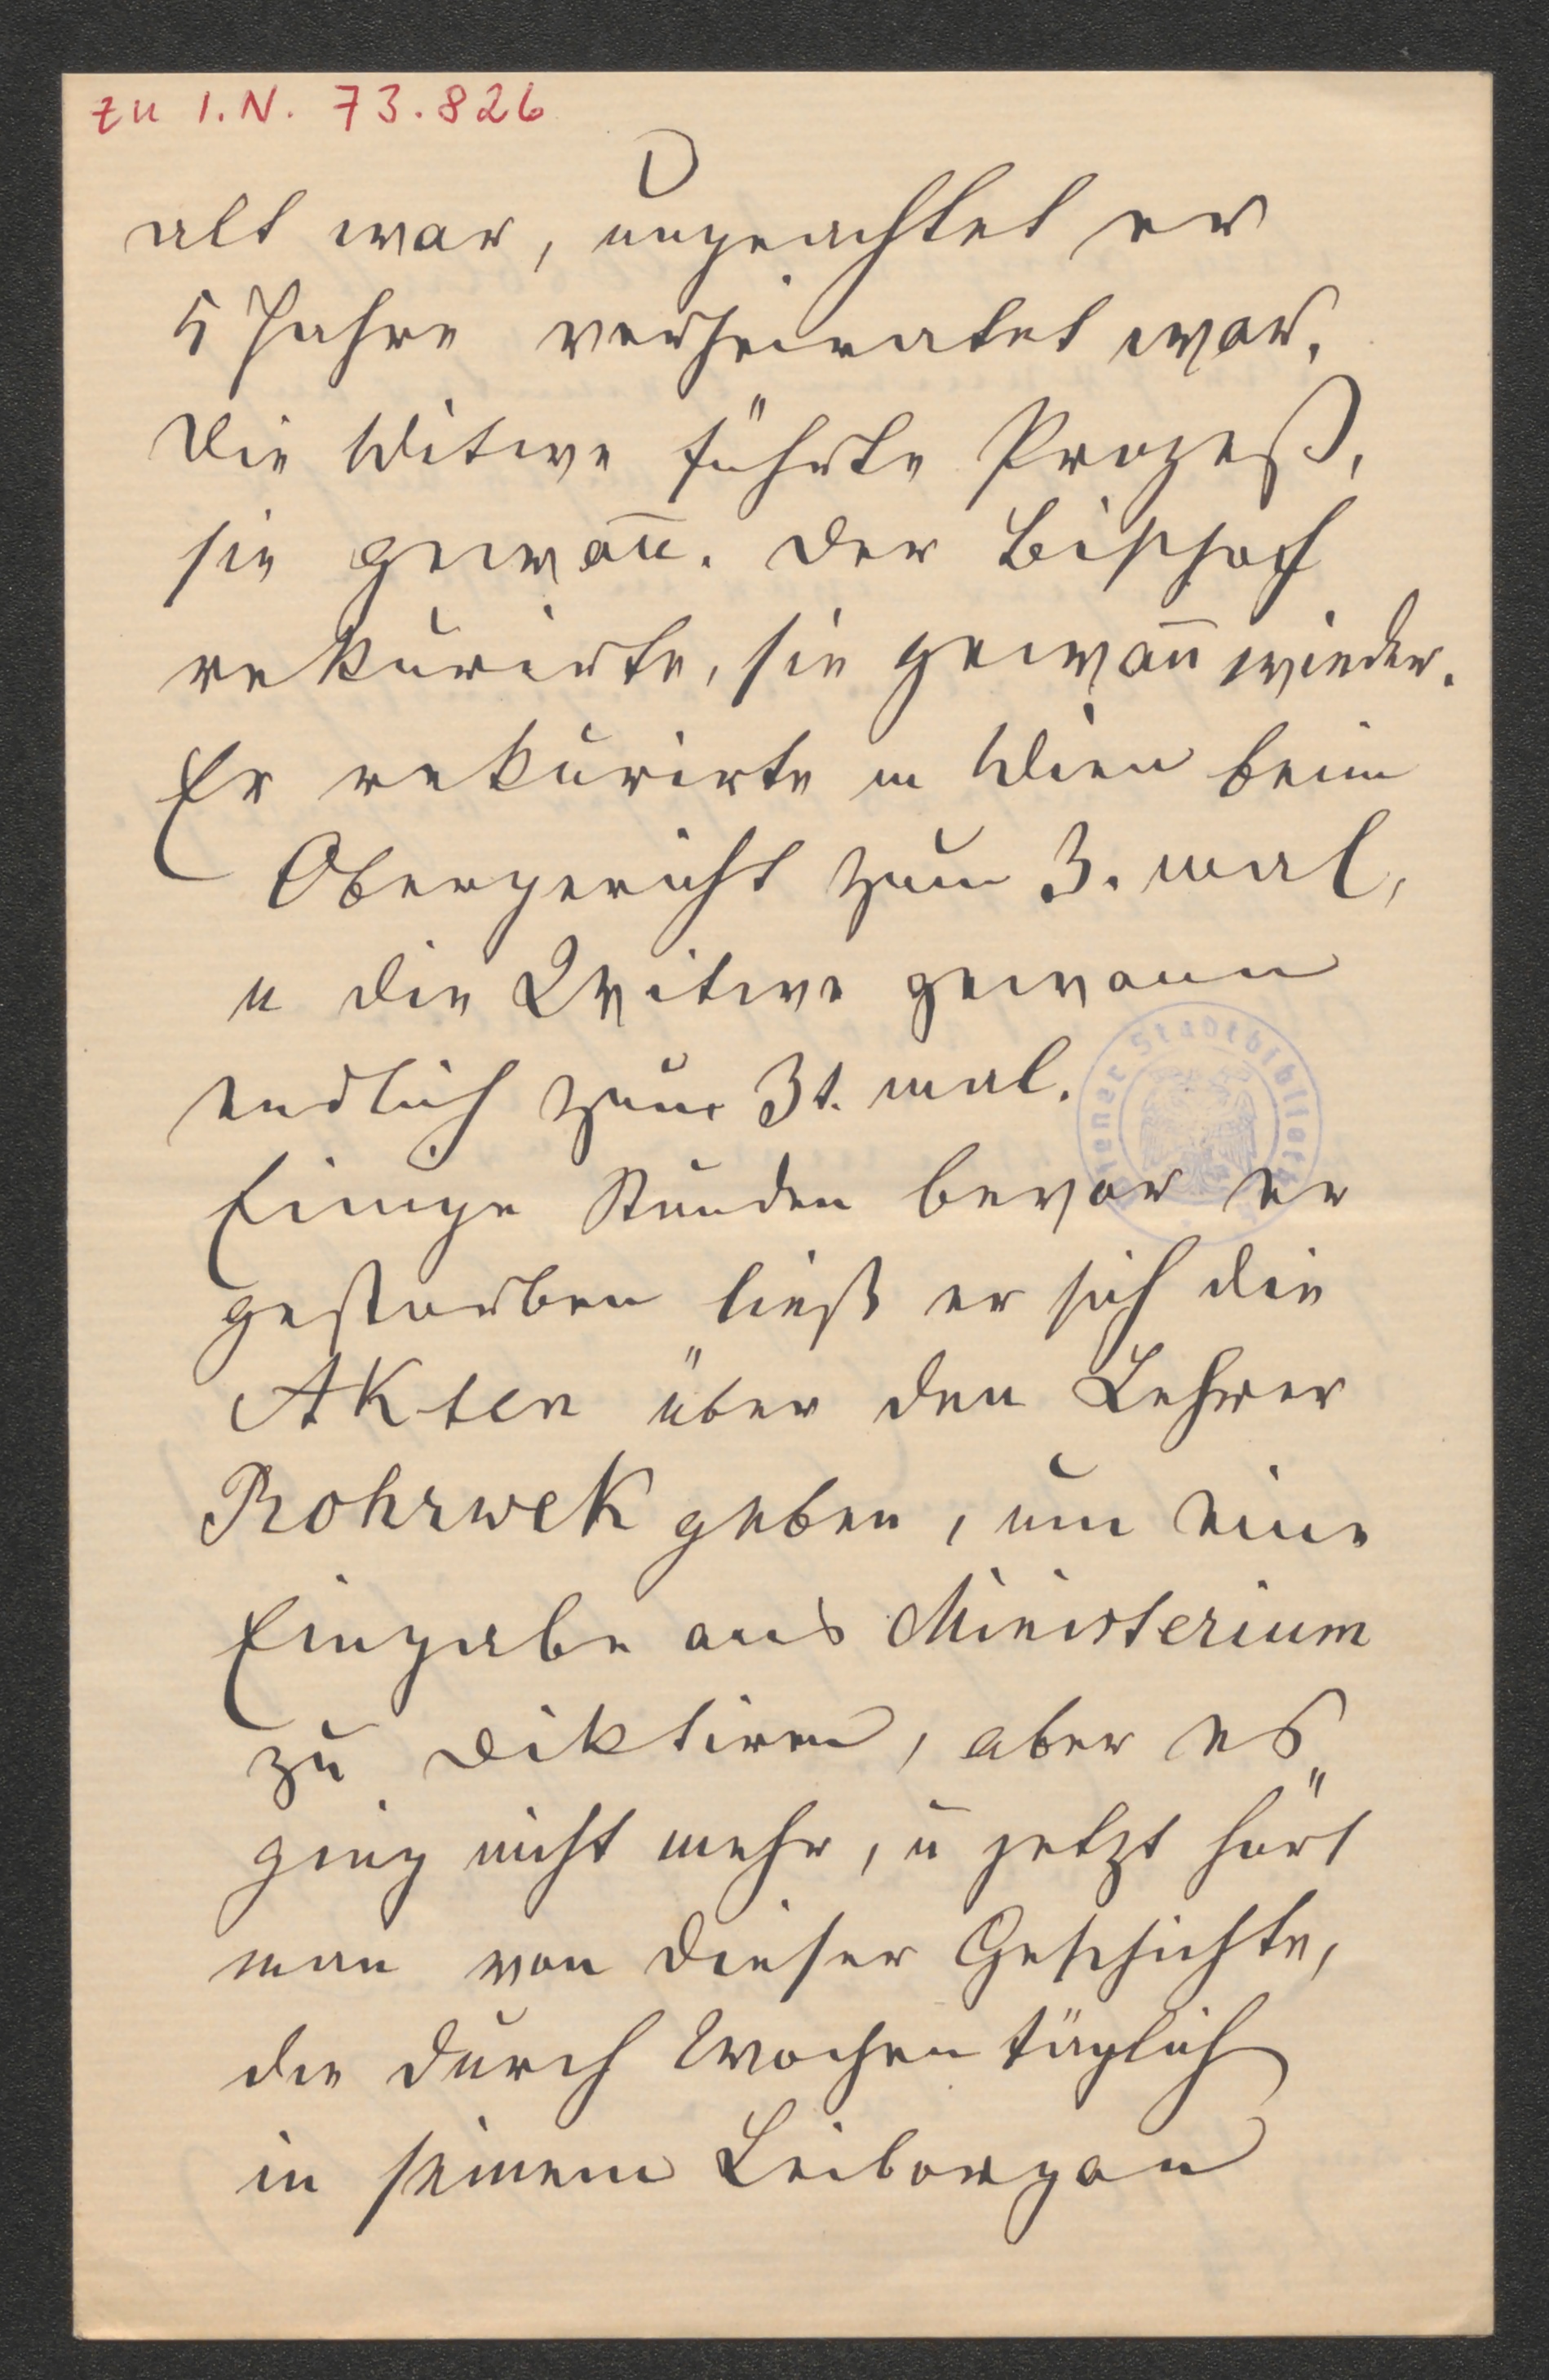 zu I.N. 73.826
alt war, ungeachtet er
5 Jahre verheiratet war.
Die Witwe führte Prozeß,
sie gewan̄. Der Bischof
rekurirte, sie gewan̄ wieder.
Er rekurirte in Wien beim
Obergericht zum 3. mal,
u die Witwe gewann
endlich zum 3t. mal.
Einige Stunden bevor er
gestorben ließ er sich die
Akten über den Lehrer
Rohrwek geben, um eine
Eingabe ans Ministerium
zu diktiren, aber es
ging nicht mehr, u jetzt hört
man von dieser Geschichte,
die durch Wochen täglich
in seinem Leiborgan
Wiener Stadtbibliothek